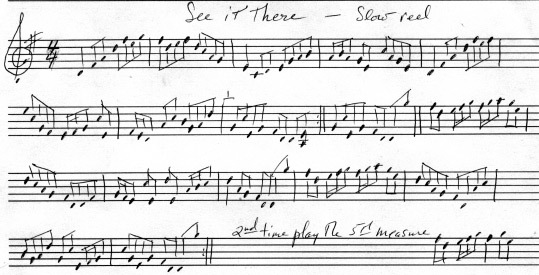 See it There — Slow reel
4/4
2nd time play the 5th measure